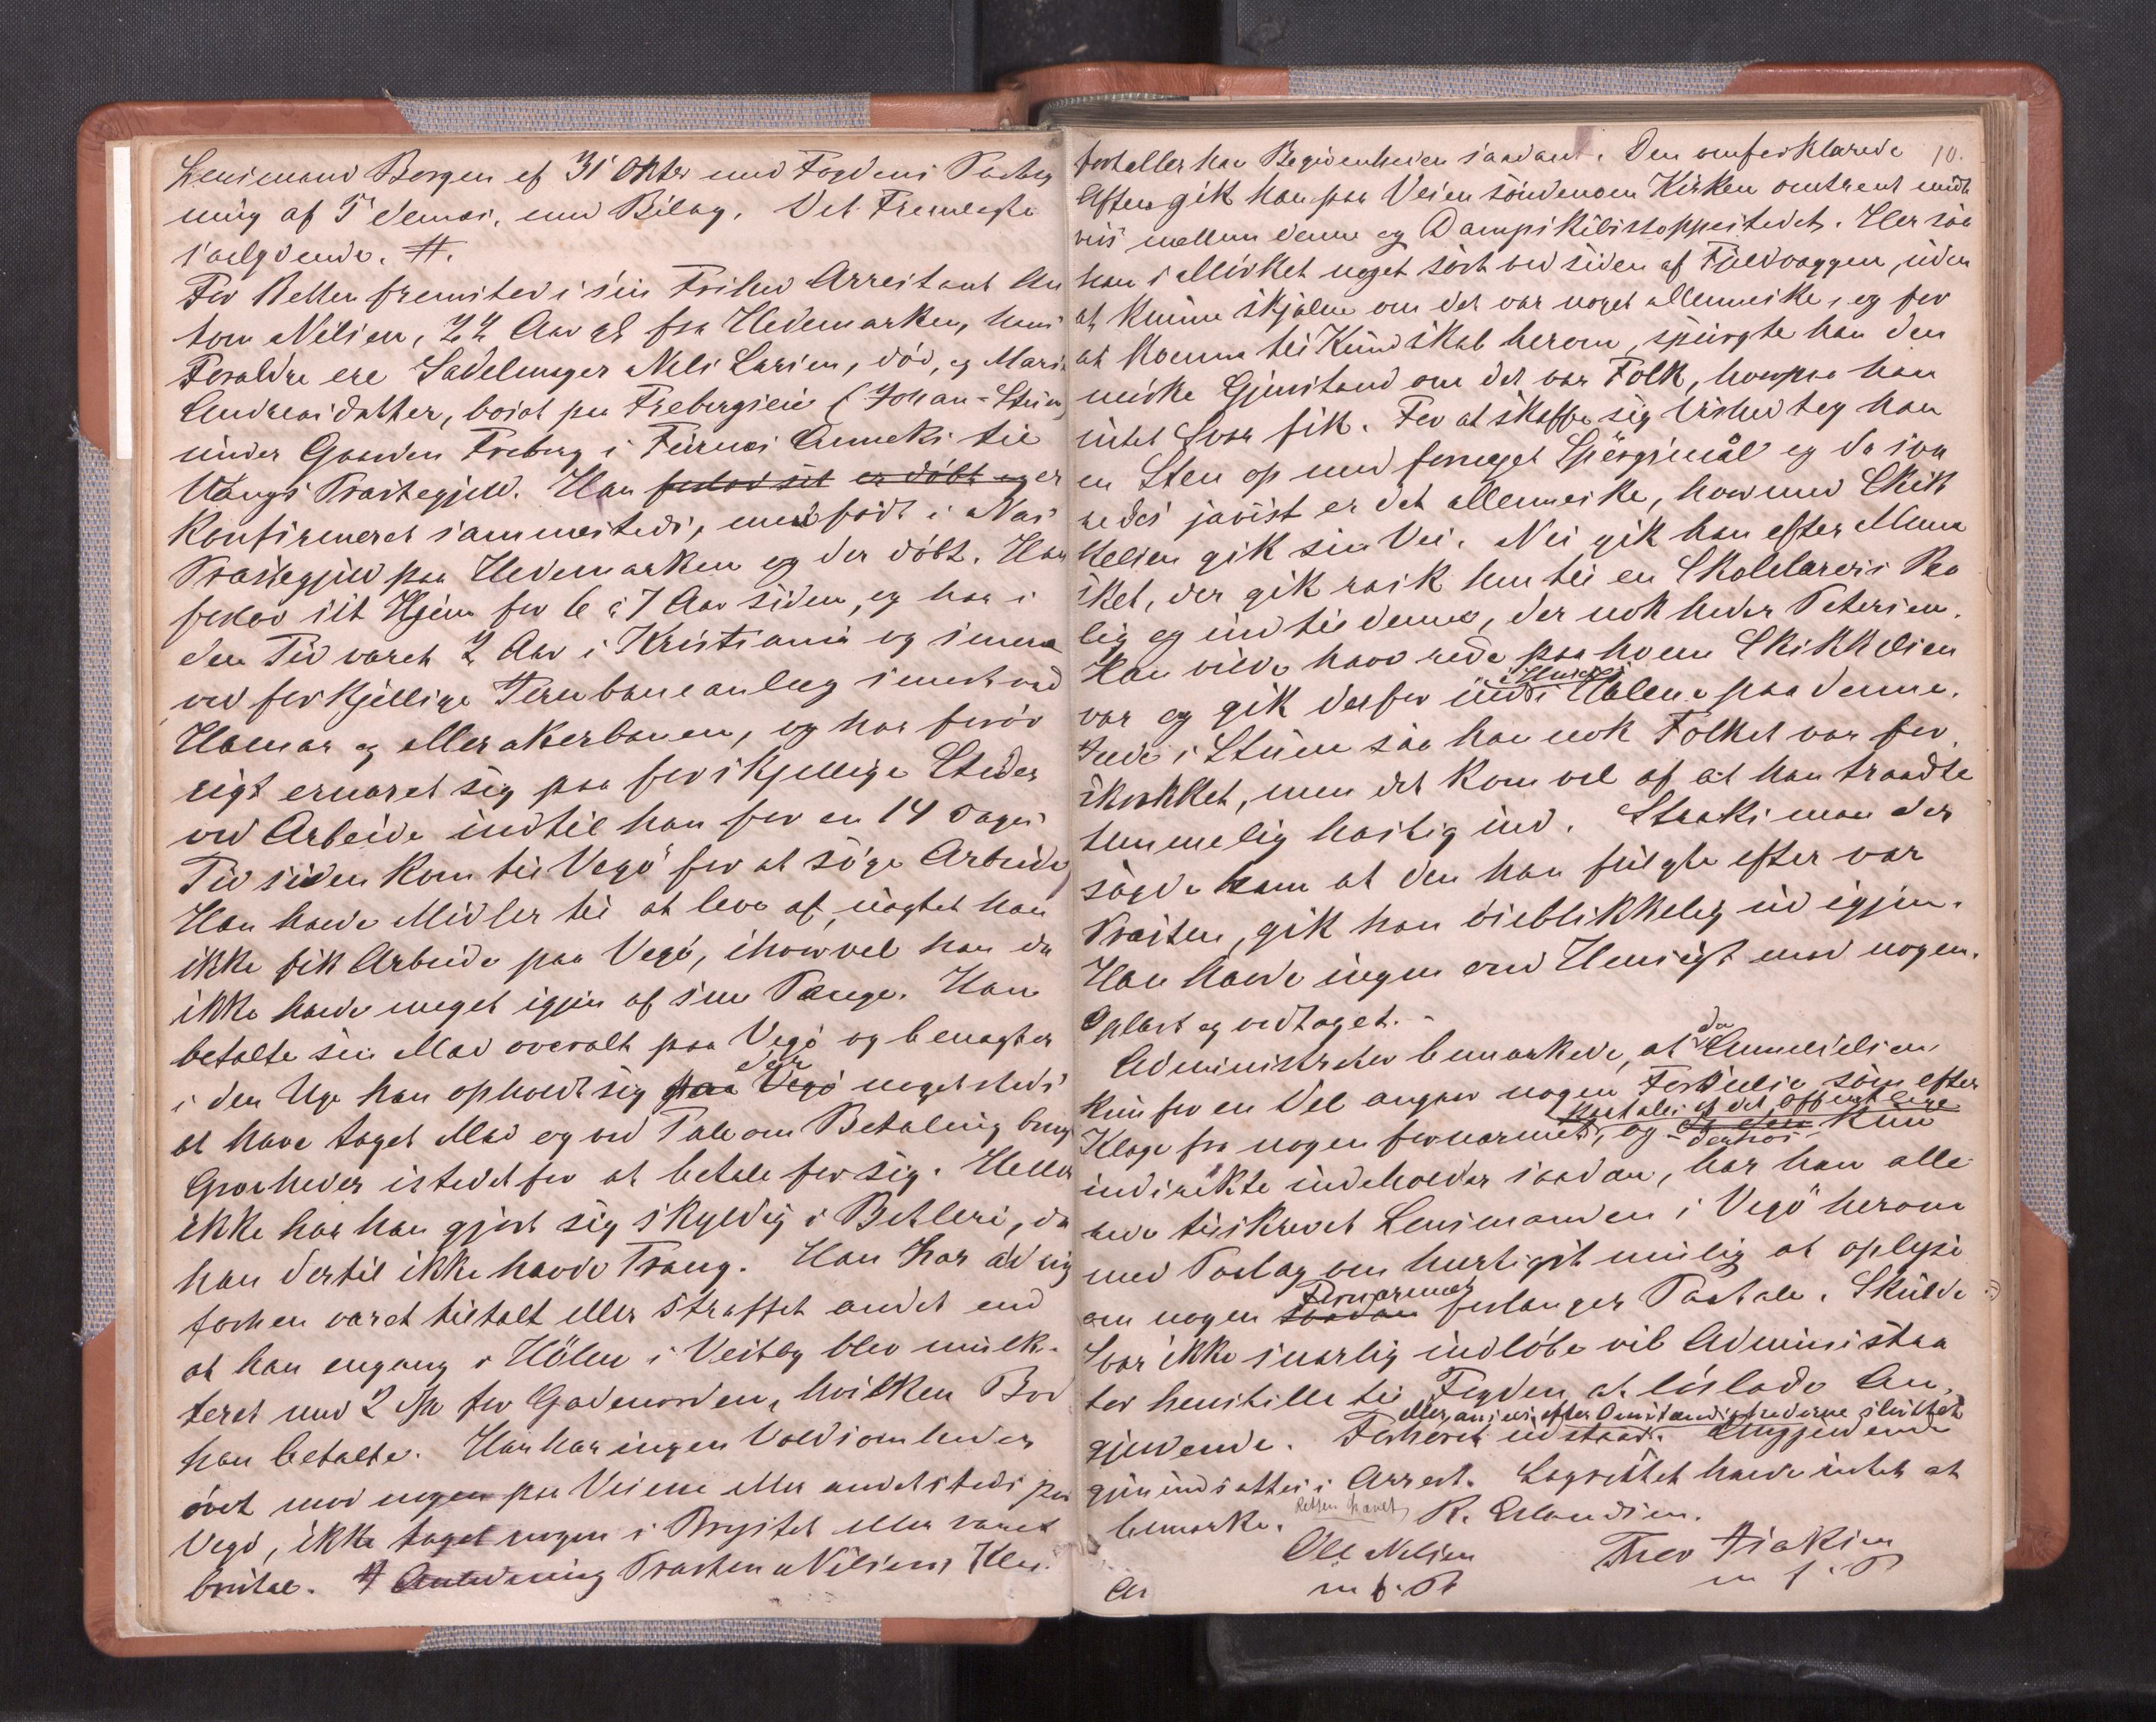 Lensmand Borgen af 31 Oktbr med Fogdens Paateg
ning af 5 dennes, med Bilag. Det Fremlagte
saalydende. #.
For Retten fremsted i sin Frihed Arrestant An
ton Nilsen, 22 Aar gl fra Hedemarken, hans
Foraldre ere Sadelmager Nils Larsen, död, og Maria
Andreasdatter, boiat paa Frebergseie (Johan-Stuen)
under Gaarden Freberg i Furnes Anneks til
Vangs Prastegjeld. Han forlod sit er döbt og er
Konfirmeret sammesteds, men födt i Nas
Prastegjeld paa Hedemarken og der döbt. Han
forlod sit Hjem for 6 à 7 Aar siden, og har i
den Tid varet 2 Aar i Kristiania og senere
ved forskjellige Jernbaneanlag senest ved
Hamar og Merakerbanen, og har forøv
rigt ernaret sig paa forskjellige Steder
ved Arbeide indtil han for en 14 Dages
Tid siden kom til Vegö for at söge Arbeide
Han havde Midler til at leve af, uagtet han
ikke fik Arbeide paa Vegö, ihvorvel han da
ikke havde meget igjen af sine Penge. Han
betalte sin Mad overalt paa Vegö og benagter
i den Uge han opholdt sig paa Vegö der nogetsteds
at have taget Mad og ved Tale om Betaling brugt
Grovheder istedetfor at betale for sig. Heller
ikke har han gjort sig skyldig i Betleri, da
han dertil ikke havde Trang. Han har aldrig
forhen varet tiltalt eller straffet andet end
at han engang i Hölen i Vestby blev mulk-
teret med 2 Kr for Gadeuorden, hvilken Bod
han betalte. Han har ingen Voldsomheder
övet mod nogen paa Veiene eller andetsteds paa
Vegö, ikke taget nogen i Brystet eller varet
brutal. # Anledning Prasten Nilsens Klage
fortaller han Begivenheden saadan: Den omforklarede 10.
Aften gik han paa Veien söndenom Kirken omtrent midt
veis mellem denne og Dampskibsstoppestedet. Her saa
han i Mörket noget sort ved siden af Fjeldvaggen, uden
at kunne skjelne om det var noget Menneske, og for
at komme til Kundskab herom, spurgte han den
mörke Gjenstand om det var Folk, hvorpaa han
intet Svar fik. For at skaffe sig Vished tog han
en Sten op med fornyet Spörgsmål og da sva
redes javist er det Menneske, hvormed Skik
kelsen gik sin Vei. Nu gik han efter Menne
sket, der gik rask hen til en Skolelarers Bo
lig og ind til denne, der nok heder Petersen.
Han vilde have rede paa hvem Skikkelsen
var og gik derfor ind i Huset i Halene paa denne.
Inde i Stuen saa han nok Folket var for
skrakket, men det kom vel af at han traadte
temmelig hastig ind. Straks man der
sagde ham at den han fulgte efter var
Prasten, gik han öieblikkelig ud igjen.
Han havde ingen ond Hensigt mod nogen.
Oplast og vedtaget. -
Administrator bemarkede, at da Anmeldelsen
kun for en Del angaar nogen Forseelse som efter
Klage fra nogen fornarmet, og paatales af det offentlige
en den desuden kun
indirekte indeholder saadan, har han alle
rede tilskrevet Lensmanden i Vegö herom
med Paalag om hurtigst mulig at oplyse
om nogen saadan Fornarmet forlanger Paatale. Skulde
Svar ikke snarlig indlöbe vil Administra
tor henstille til Fogden at löslade An
gjeldende. eller anses efter Omstandighederne sluttet
Forhöret udstaar. Angjeldende
gjenindsattes i Arrest. Lagrettet havde intet at
bemarke. Retten havet R. Erlandsen.
Ole Nilsen Theo Isaksen
m f. P m f. P
An